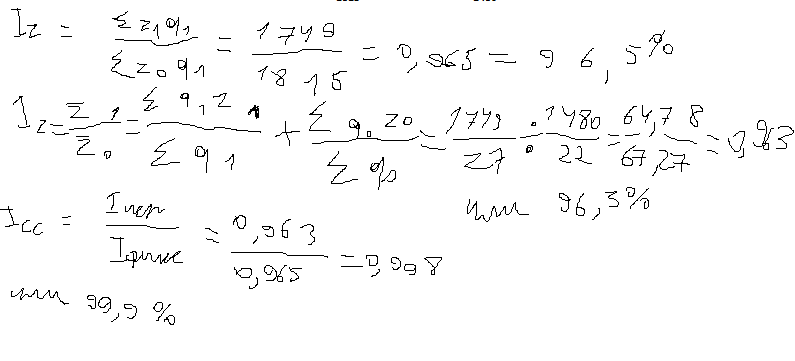 I_z = Σz₁q₁ / Σz₀q₁ = 1749 / 1815 = 0,965 = 96,5%
I_z = z̄₁ / z̄₀ = Σq₁z₁ / Σq₁ + Σq₀z₀ / Σq₀ = 1749 / 27 : 1480 / 22 = 64,78 / 67,27 = 0,963
или 96,3%
I_cc = I пер / I фикс = 0,963 / 0,965 = 0,998
или 99,9%